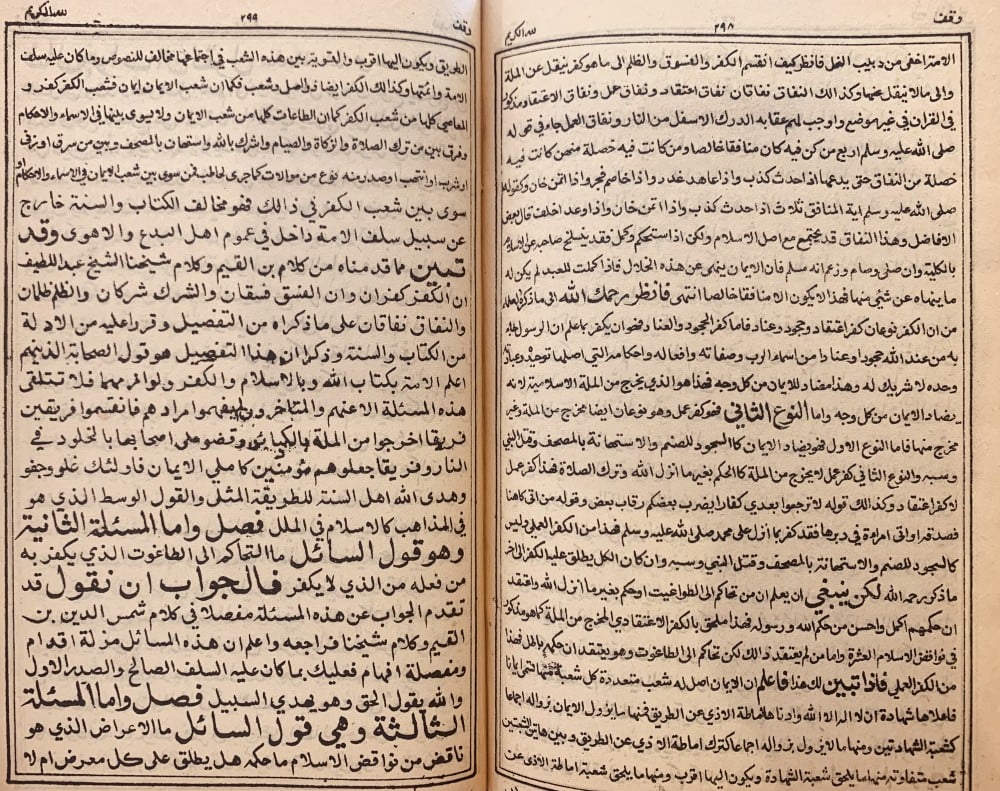 وقف
٢٩٨
لله الكريم
الامة اخفى من دبيب النمل فانظر كيف انقسم الكفر والفسوق والظلم الى ما هو كفر ينقل عن الملة
والى مالا ينقل عنها وكذا لك النفاق نفاقان نفاق اعتقاد ونفاق عمل ونفاق الاعتقاد مذكور
في القران في غير موضع واوجب لهم عقابه الدرك الاسفل من النار ونفاق العمل جاء في قوله
صلى الله عليه وسلم اربع من كن فيه كان منافقا خالصا ومن كانت فيه خصلة منهن كانت فيه
خصلة من النفاق حتى يدعها اذا حدث كذب واذا عاهد غدر واذا خاصم فجر واذا اتمن خان وكقوله
صلى الله عليه وسلم اية المنافق ثلاث اذا حدث كذب واذا اتمن خان واذا وعد اخلف قال بعض
الافاضل وهذا النفاق قد يجتمع مع اصل الاسلام ولكن اذا استحكم وكمل فقد ينسلخ صاحبه عن الاسلام
بالكلية وان صلى وصام وزعم انه مسلم فان الايمان ينهى عن هذه الخلال فاذا كملت للعبد لم يكن له
ما ينهاه عن شئ منها فهذا لا يكون الا منافقا خالصا انتهى فانظر رحمك الله الى ما ذكره العلماء
من ان الكفر نوعان كفر اعتقاد وجحود وعناد فاما كفر الجحود والعناد فهو ان يكفر بما علم ان الرسول جاء
به من عند الله جحودا وعنادا من اسماء الرب وصفاته وافعاله واحكامه التي اصلها توحيده وعبادته
وحده لا شريك له وهذا مضاد للايمان من كل وجه فهذا هو الذي يخرج من الملة الاسلامية لانه
يضاد الايمان من كل وجه واما النوع الثاني فهو كفر عمل وهو نوعان ايضا مخرج من الملة وغير
مخرج منها فاما النوع الاول فهو يضاد الايمان كالسجود للصنم والاستهانة بالمصحف وقتل النبي
وسبه والنوع الثاني كفر عمل لا يخرج من الملة كالحكم بغير ما انزل الله وترك الصلاة فهذا كفر عمل
لا كفر اعتقاد وكذا لك قوله لا ترجعوا بعدي كفارا يضرب بعضكم رقاب بعض وقوله من اتى كاهنا
فصدقه او اتى امراة في دبرها فقد كفر بما انزل على محمد صلى الله عليه وسلم فهذا من الكفر العملي وليس
كالسجود للصنم والاستهانة بالمصحف وقتل النبي وسبه وان كان الكل يطلق عليه الكفر الى اخر
ما ذكره رحمه الله لكن ينبغي ان يعلم ان من تحاكم الى الطواغيت او حكم بغير ما انزل الله واعتقد
ان حكمهم اكمل واحسن من حكم الله ورسوله فهذا ملحق بالكفر الاعتقادي المخرج من الملة كما هو مذكور
في نواقض الاسلام العشرة واما من لم يعتقد ذالك لكن تحاكم الى الطاغوت وهو يعتقد ان حكمه باطل فهذا
من الكفر العملي فاذا تبين لك هذا فاعلم ان الايمان اصل له شعب متعددة كل شعبة منها تسمى ايمانا
فاعلاها شهادة ان لا اله الا الله وادناها اماطة الاذى عن الطريق فمنها ما يزول الايمان بزواله اجماعا
كشعبة الشهادتين ومنها ما لا يزول بزواله اجماعا كترك اماطة الاذى عن الطريق وبين هاتين الشعبتين
شعب متفاوتة منها ما يلحق شعبة الشهادة ويكون اليها اقرب ومنها ما يلحق شعبة اماطة الاذى عن
وقف
٢٩٩
لله الكريم
الطريق ويكون اليها اقرب والتسوية بين هذه الشعب في اجتماعها مخالف للنصوص وما كان عليه سلف
الامة وائمتها وكذا لك الكفر ايضا ذو اصل وشعب فكما ان شعب الايمان ايمان فشعب الكفر كفر و
المعاصي كلها من شعب الكفر كما ان الطاعات كلها من شعب الايمان ولا يسوى بينهما في الاسماء والاحكام
وفرق بين من ترك الصلاة والزكاة والصيام واشرك بالله واستهان بالمصحف وبين من سرق او زنى
او شرب او انتهب او صدر منه نوع من موالات كما جرى لحاطب فمن سوى بين شعب الايمان في الاسماء والاحكام او
سوى بين شعب الكفر في ذالك فهو مخالف الكتاب والسنة خارج
عن سبيل سلف الامة داخل في عموم اهل البدع والاهوى وقد
تبين مما قدمناه من كلام بن القيم وكلام شيخنا الشيخ عبد اللطيف
ان الكفر كفران وان الفسق فسقان والشرك شركان والظلم ظلمان
والنفاق نفاقان على ما ذكراه من التفصيل وقررا عليه من الادلة
من الكتاب والسنة وذكرا ان هذا التفصيل هو قول الصحابة الذينهم
اعلم الامة بكتاب الله وبالاسلام والكفر ولوازمهما فلا تتلقى
هذه المسئلة الا عنهم والمتاخرون لم يفهموا مرادهم فانقسموا فريقين
فريقا اخرجوا من الملة بالكبائر وقضوا على اصحابها بالخلود في
النار وفريقا جعلوهم مؤمنين كاملي الايمان فاولئك غلو وجفو
وهدى الله اهل السنة للطريقة المثلى والقول الوسط الذي هو
في المذاهب كالاسلام في الملل فصل واما المسئلة الثانية
وهو قول السائل ما التحاكم الى الطاغوت الذي يكفر به
من فعله من الذي لا يكفر فالجواب ان نقول قد
تقدم الجواب عن هذه المسئلة مفصلا في كلام شمس الدين بن
القيم وكلام شيخنا فراجعه واعلم ان هذه المسائل مزلة اقدام
ومضلة افهام فعليك بما كان عليه السلف الصالح والصدر الاول
والله يقول الحق وهو يهدي السبيل فصل واما المسئلة
الثالثة وهي قول السائل ما الاعراض الذي هو
ناقض من نواقض الاسلام ما حكمه هل يطلق على كل معرض ام لا